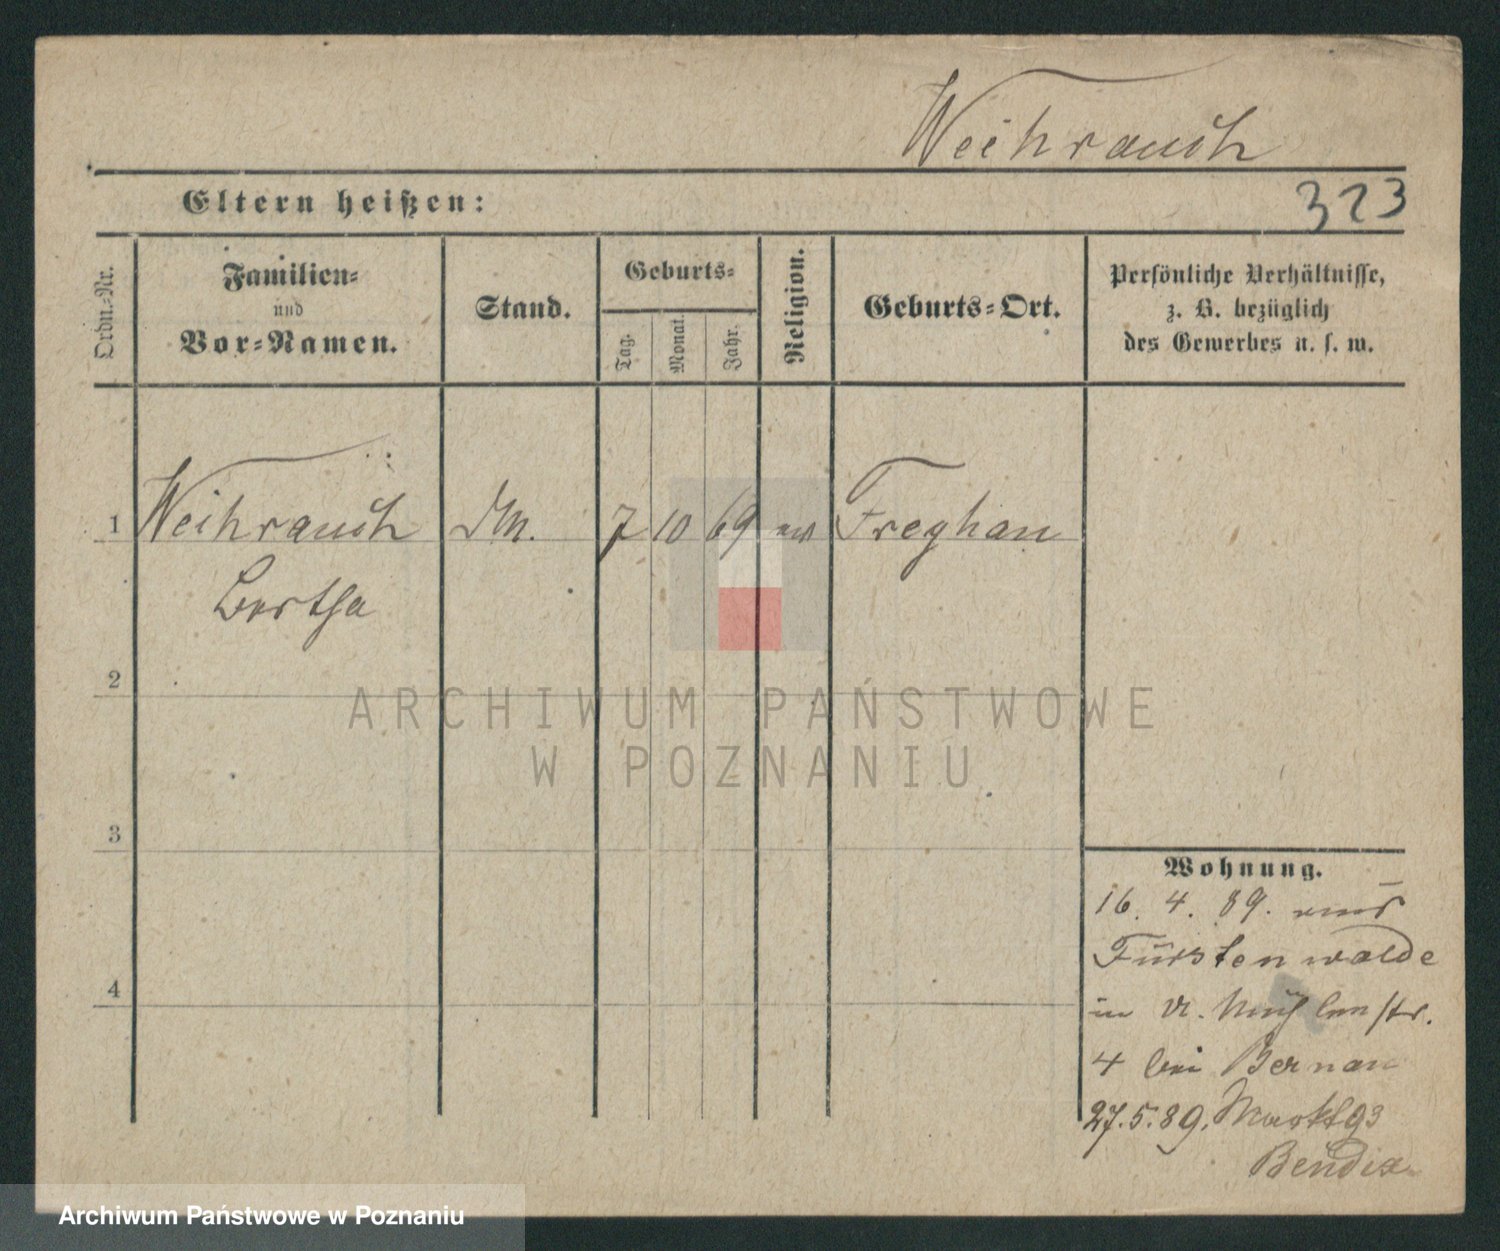 Weihrauch
Eltern heißen:
323
Ordn.-Nr.
Familien-
und
Vor-Namen.
Stand.
Geburts-
Tag.
Monat.
Jahr.
Religion.
Geburts-Ort.
Persönliche Verhältnisse,
z. B. bezüglich
des Gewerbes u. s. w.
1 Weihrauch 7 10 69 ev Freyhan
Bertha
2
3
4
ARCHIWUM PAŃSTWOWE
W POZNANIU
Wohnung.
16. 4. 89. aus
Fürstenwalde
in Mühlenstr.
4 bei Bernau
27.5.89. Markt 93
Bendix
Archiwum Państwowe w Poznaniu